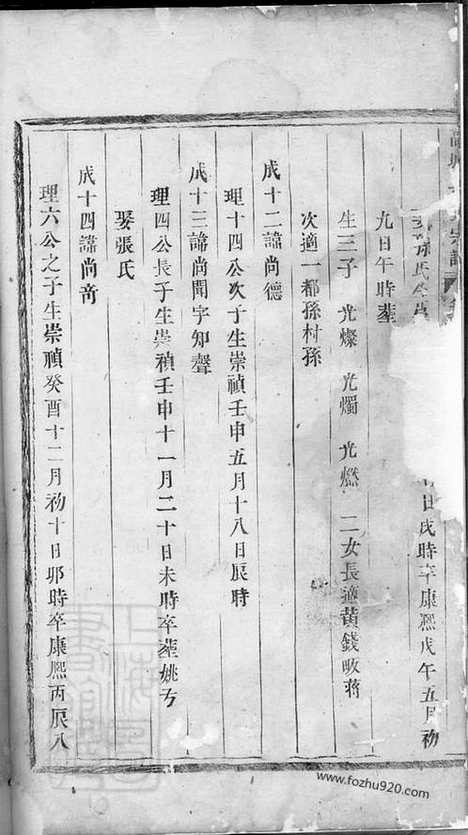 日戌時卒康熙戊午五月初
九日午時葬
生三子 光燦 光燭 光燃 二女長適黃錢畈蔣
次適一都孫村孫
成十二諱尚德
理十四公次子生崇禎壬申五月十八日辰時
成十三諱尚聞字知聲
理四公長子生崇禎壬申十一月二十日未時卒葬姚方
娶張氏
成十四諱尚奇
理六公之子生崇禎癸酉十二月初十日卯時卒康熙丙辰八
www.fozhu920.com